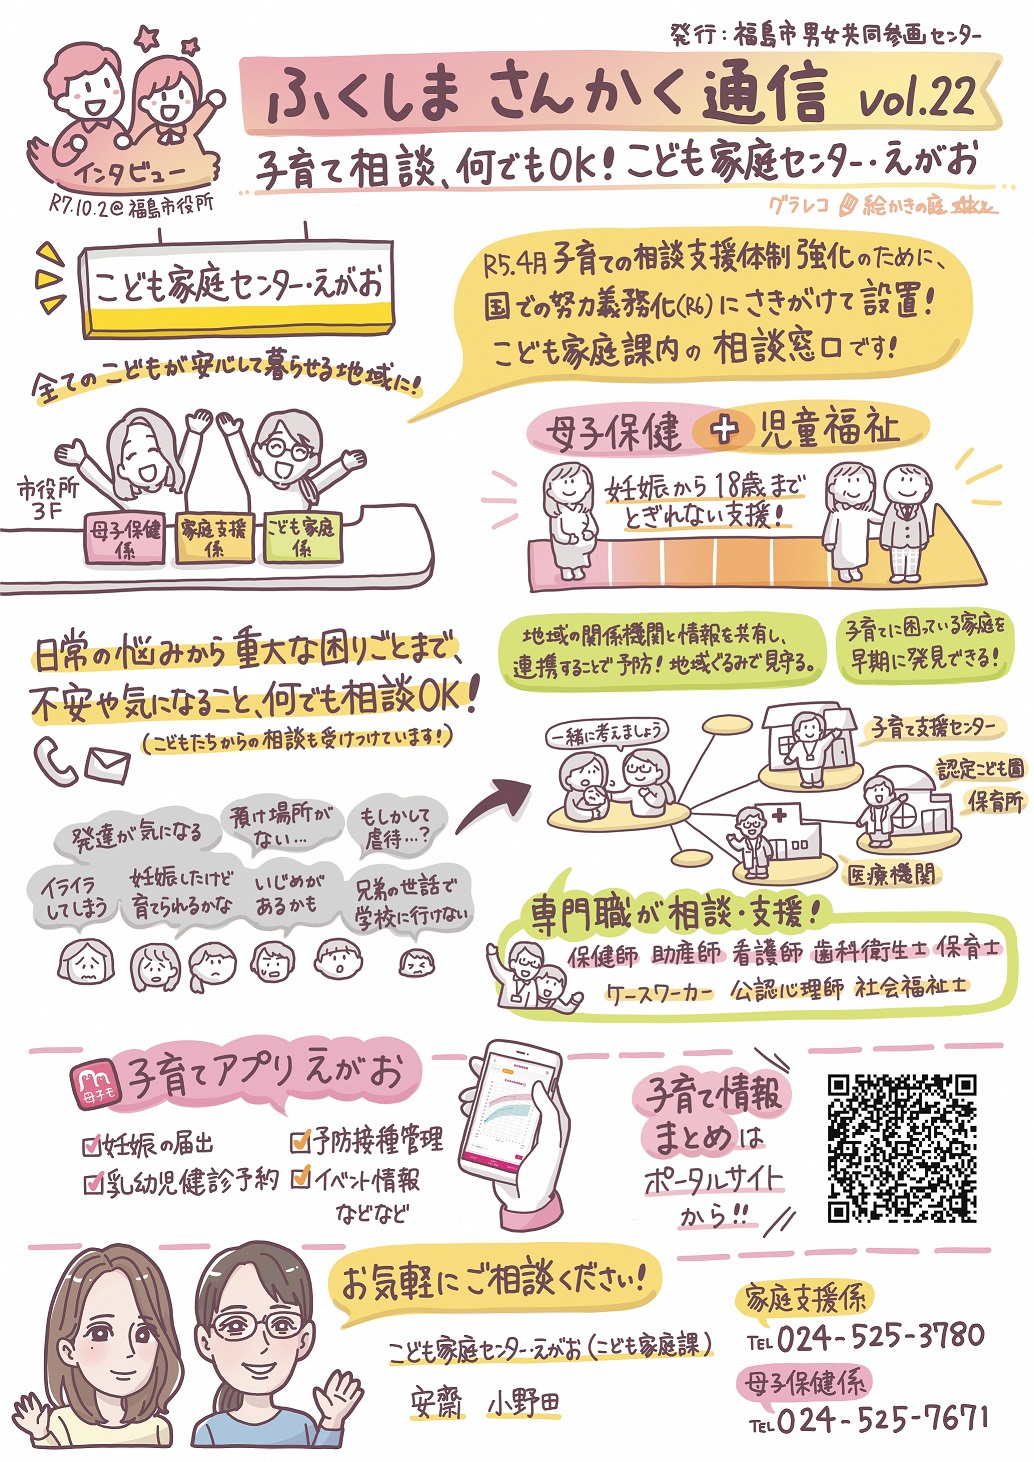 発行:福島市男女共同参画センター
ふくしま さんかく通信 vol.22
子育て相談、何でもOK!こども家庭センター・えがお
インタビュー
R7.10.2@福島市役所
グラレコ 絵かきの庭
こども家庭センター・えがお
R5.4月子育ての相談支援体制強化のために、
国での努力義務化(R6)にさきがけて設置!
こども家庭課内の相談窓口です!
全てのこどもが安心して暮らせる地域に!
市役所
3F
母子保健
係
家庭支援
係
こども家庭
係
母子保健 + 児童福祉
妊娠から18歳まで
とぎれない支援!
日常の悩みから重大な困りごとまで、
不安や気になること、何でも相談OK!
(こどもたちからの相談も受けつけています!)
地域の関係機関と情報を共有し、
連携することで予防!地域ぐるみで見守る。
子育てに困っている家庭を
早期に発見できる!
発達が気になる
預け場所が
ない…
もしかして
虐待…?
イライラ
してしまう
妊娠したけど
育てられるかな
いじめが
あるかも
兄弟の世話で
学校に行けない
一緒に考えましょう
子育て支援センター
認定こども園
保育所
医療機関
専門職が相談・支援!
保健師 助産師 看護師 歯科衛生士 保育士
ケースワーカー 公認心理師 社会福祉士
母子モ
子育てアプリえがお
妊娠の届出
予防接種管理
乳幼児健診予約
イベント情報
などなど
子育て情報
まとめは
ポータルサイト
から!!
お気軽にご相談ください!
こども家庭センター・えがお(こども家庭課)
安齋 小野田
家庭支援係
TEL 024-525-3780
母子保健係
TEL 024-525-7671